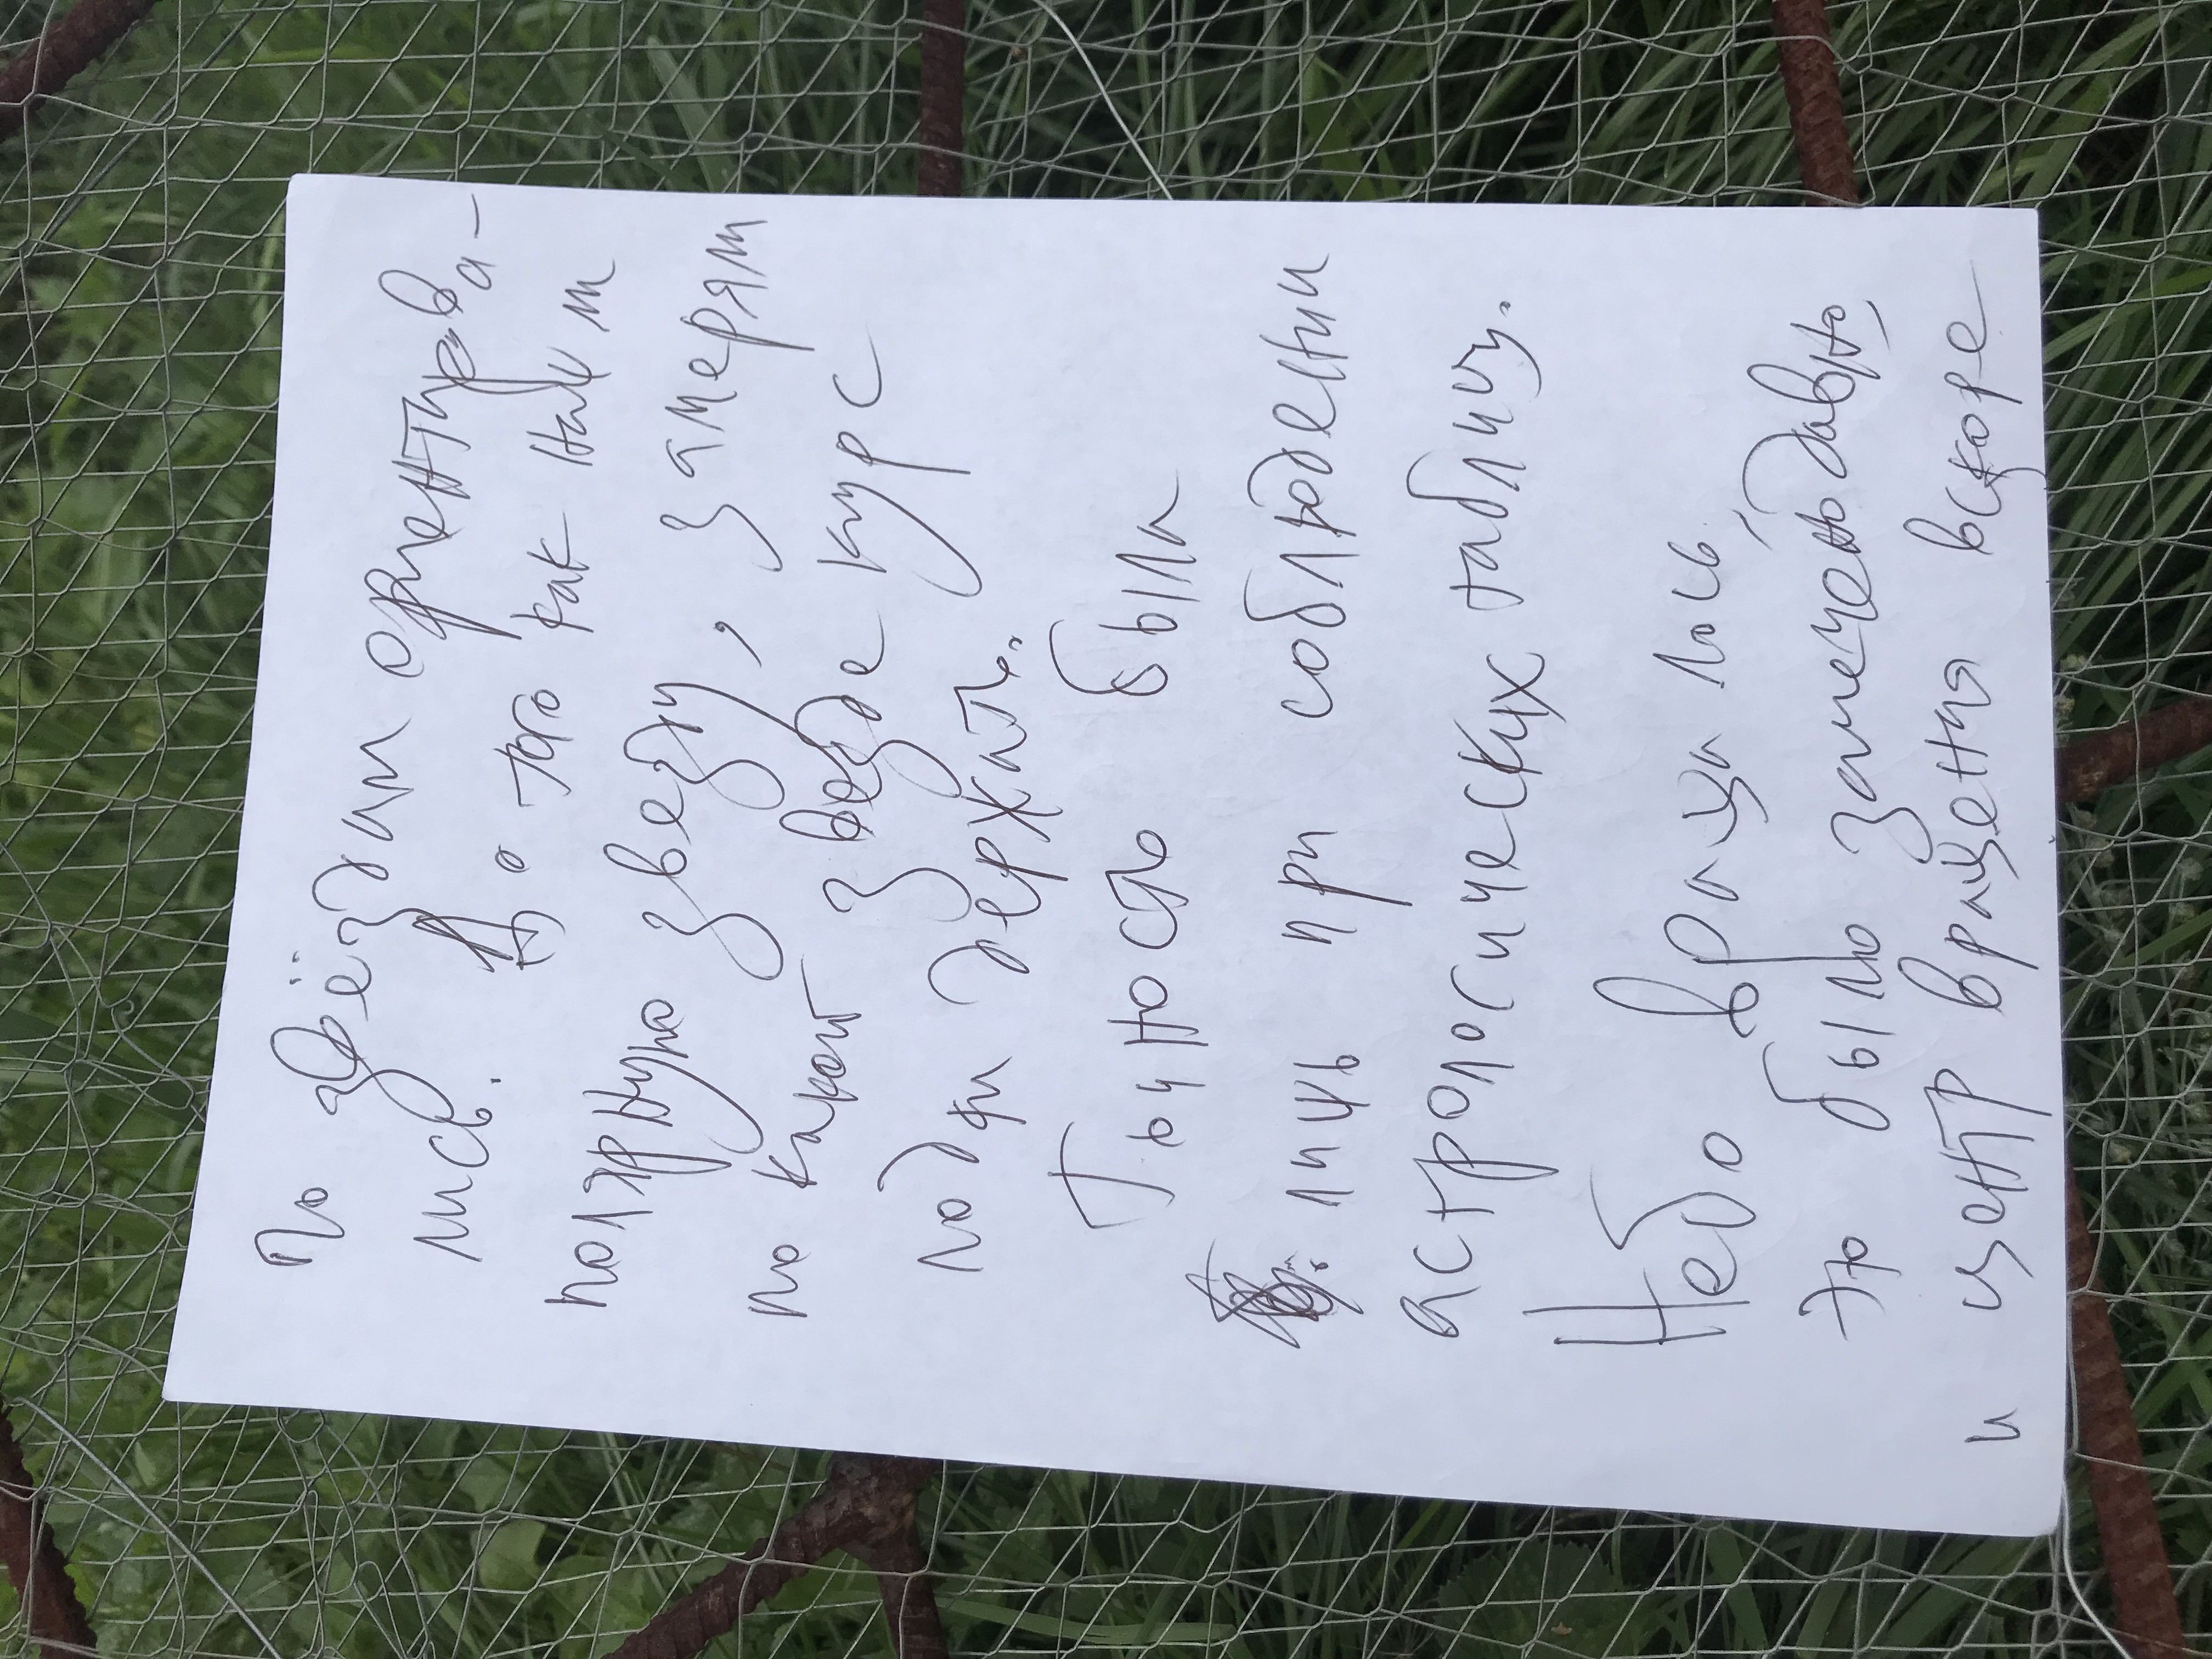 по звёздам ориентирова-
лись. До того как нашли
полярную звезду, замеряли
по какой звезде курс
лодки держать.
Точность была
лишь при соблюдении
астрологических таблиц.
Небо вращалось,
это было замечено давно,
и центр вращения вскоре